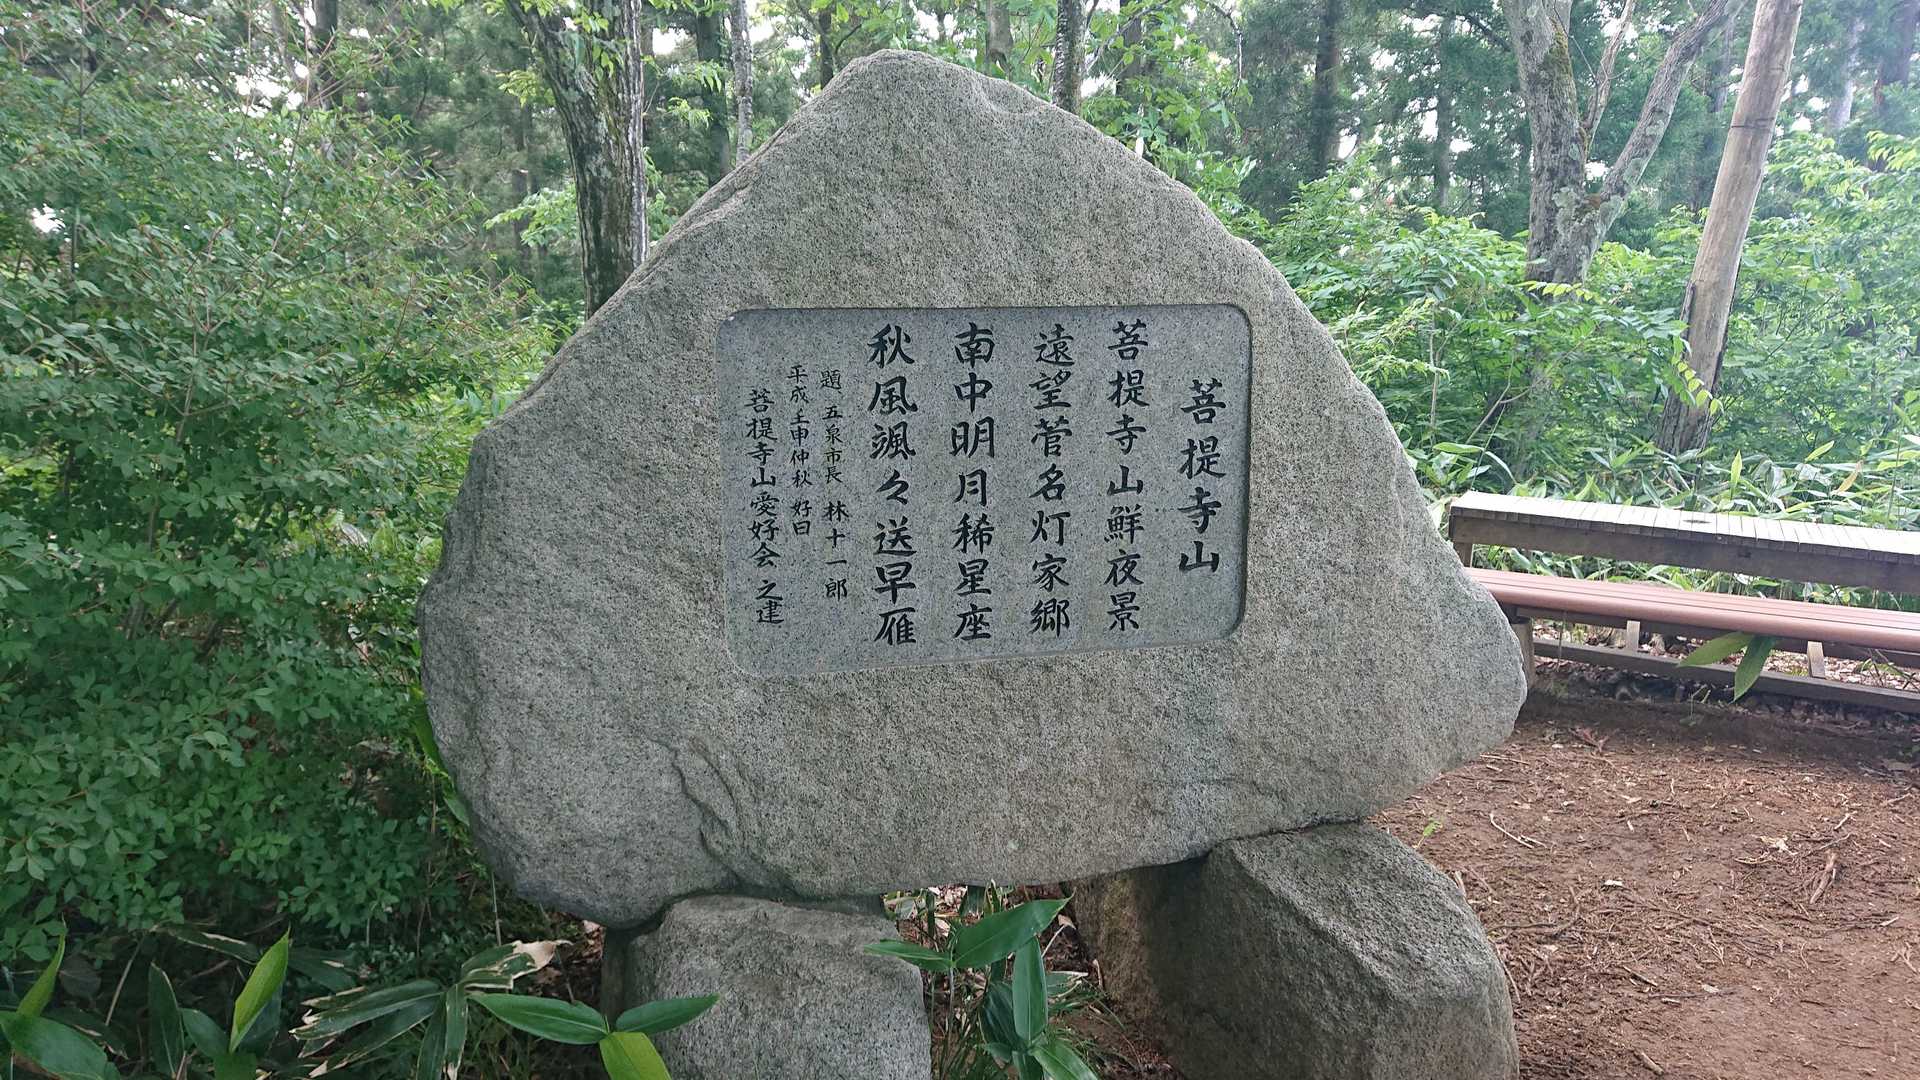 菩提寺山
菩提寺山鮮夜景
遠望菅名灯家郷
南中明月稀星座
秋風颯々送早雁
題 五泉市長 林十一郎
平成壬申仲秋 好日
菩提寺山愛好会 之建